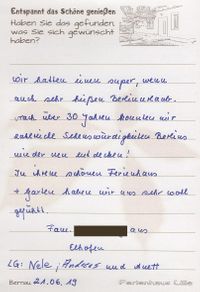 Entspannt das Schöne genießen
Haben Sie das gefunden,
was Sie sich gewünscht
haben?
Wir hatten einen super, wenn
auch sehr heißen Berlinurlaub.
Nach über 30 Jahren konnten wir
zahlreiche Sehenswürdigkeiten Berlins
wieder neu entdecken!
In Ihrem schönen Ferienhaus
+ Garten haben wir uns sehr wohl
gefühlt.
Fam. aus
Elhofen
LG: Nele, Andreas und Anett
Bernau 21.06.19 Ferienhaus Lille